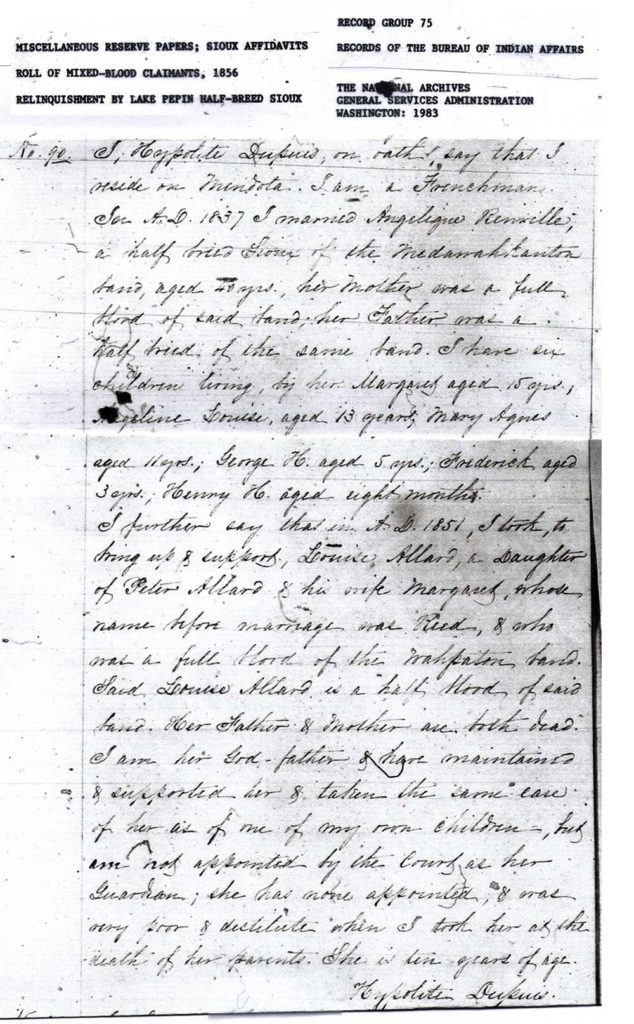 MISCELLANEOUS RESERVE PAPERS; SIOUX AFFIDAVITS
ROLL OF MIXED-BLOOD CLAIMANTS, 1856
RELINQUISHMENT BY LAKE PEPIN HALF-BREED SIOUX
RECORD GROUP 75
RECORDS OF THE BUREAU OF INDIAN AFFAIRS
THE NATIONAL ARCHIVES
GENERAL SERVICES ADMINISTRATION
WASHINGTON: 1983
No. 90. I, Hypolite Dupuis, on oath, say that I
reside on Mendota. I am a Frenchman.
In A.D. 1837 I married Angelique Renville,
a half breed Sioux of the Medawahkanton
band, aged 40 yrs., her Mother was a full
blood of said band; her Father was a
half breed of the same band. I have six
children living, by her. Margaret aged 15 yrs.;
Angeline Louise, aged 13 years; Mary Agnes
aged 11 yrs.; George H. aged 5 yrs.; Frederick aged
3 yrs.; Henry H. aged eight months.
I further say that in A.D. 1851, I took, to
bring up & support, Louise Allard, a Daughter
of Peter Allard & his wife Margaret, whose
name before marriage was Reed, & who
was a full blood of the Wahpaton band.
Said Louise Allard is a half blood of said
band. Her Father & Mother are both dead.
I am her God-father & have maintained
& supported her & taken the same care
of her as of one of my own children, but
am not appointed by the Court as her
Guardian; she has none appointed, & was
very poor & destitute when I took her at the
death of her parents. She is ten years of age.
Hypolite Dupuis.